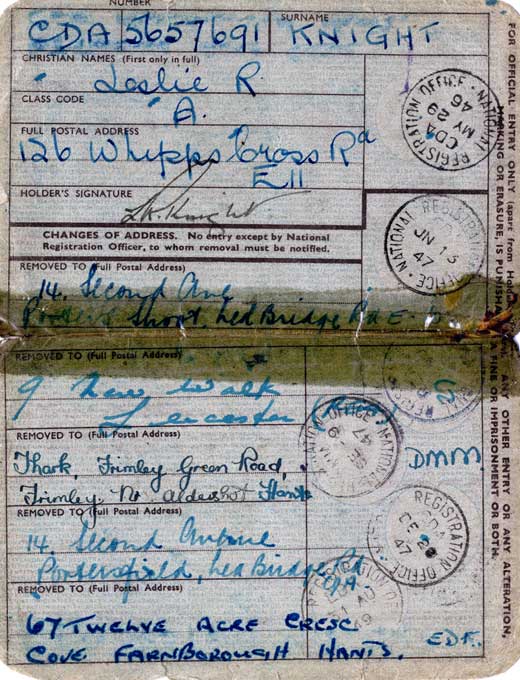 NUMBER
CDA 5657691
SURNAME
KNIGHT
CHRISTIAN NAMES (First only in full)
Leslie R
CLASS CODE
A.
FULL POSTAL ADDRESS
126 Whipps Cross Rd
E11
HOLDER'S SIGNATURE
L.R. Knight
CHANGES OF ADDRESS. No entry except by National
Registration Officer, to whom removal must be notified.
REMOVED TO (Full Postal Address)
14. Second Ave
Lea Bridge Rd E
REMOVED TO (Full Postal Address)
9 New Walk
Leicester
REMOVED TO (Full Postal Address)
Thark, Frimley Green Road,
Frimley. Nr. Aldershot Hants
REMOVED TO (Full Postal Address)
14. Second Avenue
Lea Bridge Rd
REMOVED TO (Full Postal Address)
67 TWELVE ACRE CRESC
COVE FARNBOROUGH HANTS.
EDK.
DMM
NATIONAL REGISTRATION OFFICE
CDA
MY 29
46
NATIONAL REGISTRATION OFFICE
JN 13
47
NATIONAL REGISTRATION OFFICE
47
REGISTRATION OFFICE
CDA
DE
47
REGISTRATION
49
FOR OFFICIAL ENTRY ONLY (apart from Holder's ANY OTHER ENTRY OR ANY ALTERATION,
MARKING OR ERASURE, IS PUNISHABLE A FINE OR IMPRISONMENT OR BOTH.